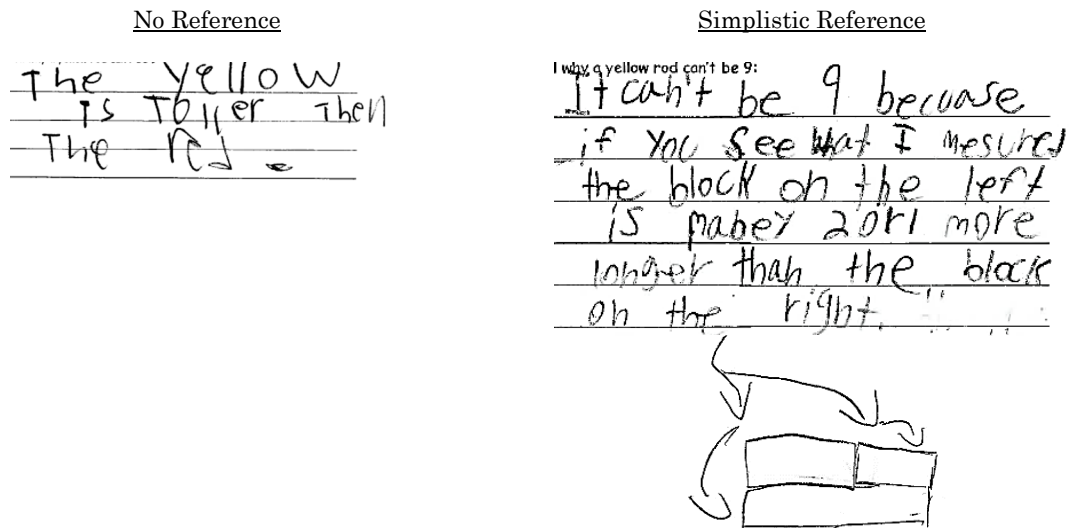 No Reference
The yellow
is Toller Then
The red.
Simplistic Reference
l why a yellow rod can't be 9:
It can't be 9 becuase
if you see what I mesured
the block on the left
is mabey 2 or 1 more
longer than the block
on the right.